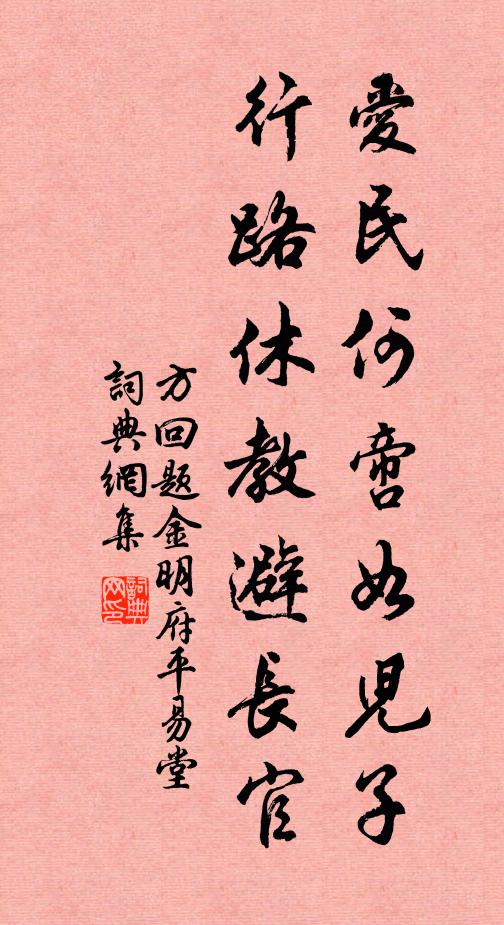 愛民何啻如兒子
行路休教避長官
方回題金明府平易堂
詞典網集
詞典网印